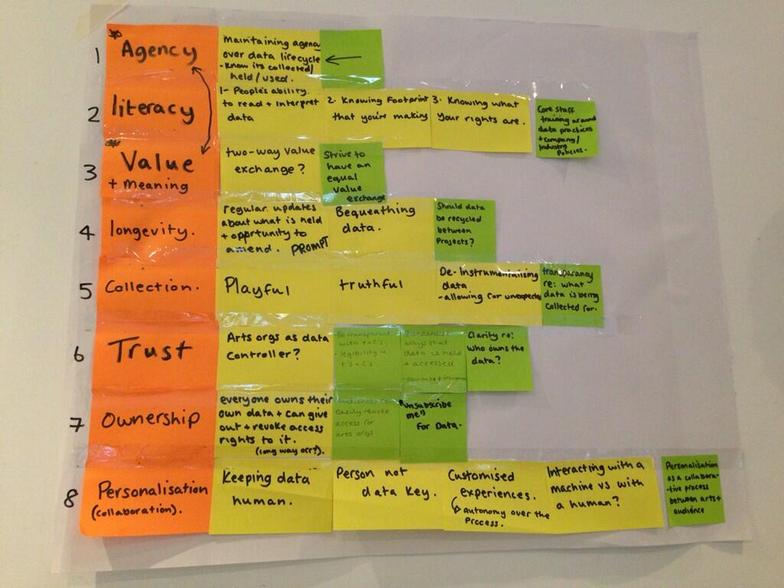 1
Agency
Maintaining agency
over data lifecycle
- Know its collected/
held/used.
2
literacy
1- People's ability
to read + interpret
data
2. Knowing Footprint
that you're making
3. Knowing what
Your rights are.
Core staff
training around
data practices
+ company/
Industry
Policies.
3
Value
+ Meaning
two-way value
exchange?
Strive to
have an
equal
value
exchange
4
longevity.
regular updates
about what is held
+ opprtunity to
amend. PROMPT
Bequeathing
data.
Should data
be recycled
between
Projects?
5
Collection.
Playful
truthful
De-Instrumentalising
data
- allowing for unexpected
transparancy
re: what
data is being
Collected for.
6
Trust
Arts orgs as data
Controller?
Be transparent
with t+c's
- legibility of
T's + C's
ways that
data is held
+ accessed
Clarity re:
who owns the
data?
7
Ownership
everyone owns their
own data + can give
out + revoke access
rights to it.
(long way off).
easily revoke
access for
arts orgs
"Unsubscribe
me"
For Data.
8
Personalisation
(collaboration).
Keeping data
human.
Person not
data key.
Customised
experiences.
autonomy over the
Process.
Interacting with a
machine vs with
a human?
Personalisation
as a collabora-
-tive process
between arts +
audience